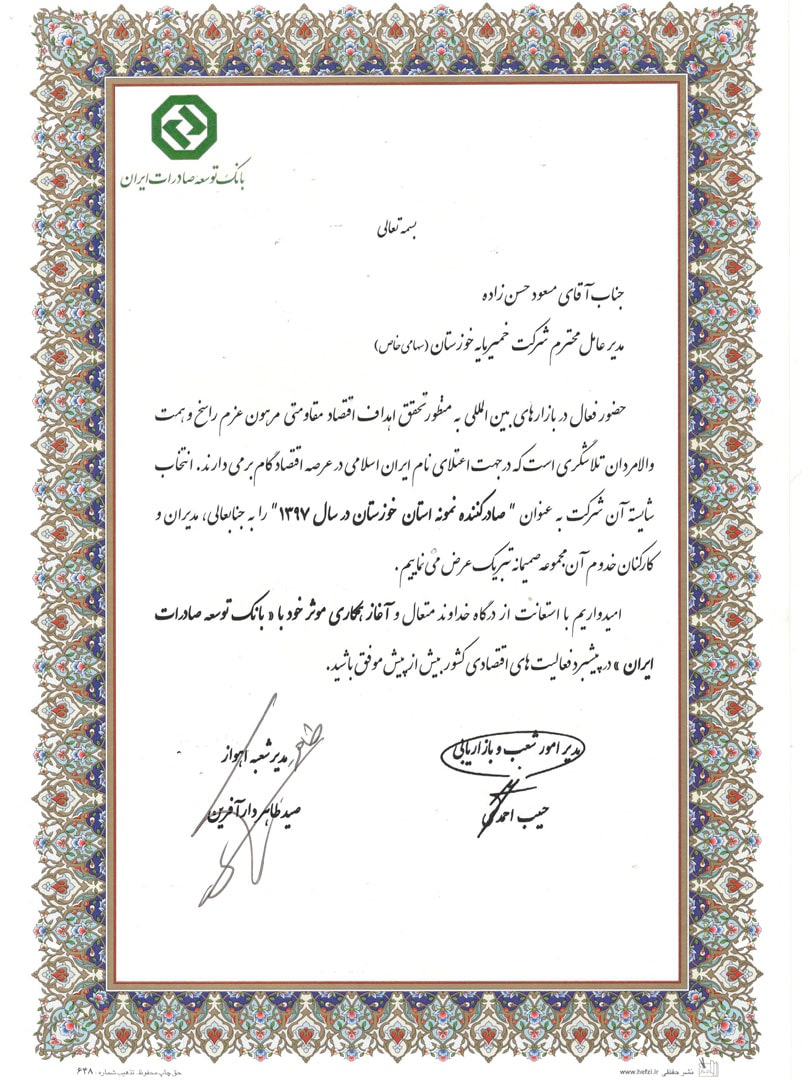 بانک توسعه صادرات ایران
بسمه تعالی
جناب آقای مسعود حسن زاده
مدیر عامل محترم شرکت خمیرمایه خوزستان (سهامی خاص)
حضور فعال در بازارهای بین المللی به منظور تحقق اهداف اقتصاد مقاومتی مرهون عزم راسخ و همت
والامردان تلاشگری است که در جهت اعتلای نام ایران اسلامی در عرصه اقتصاد گام برمی دارند. انتخاب
شایسته آن شرکت به عنوان " صادرکننده نمونه استان خوزستان در سال ۱۳۹۷" را به جنابعالی، مدیران و
کارکنان خدوم آن مجموعه صمیمانه تبریک عرض می نماییم.
امیدواریم با استعانت از درگاه خداوند متعال و آغاز همکاری موثر خود با « بانک توسعه صادرات
ایران » در پیشبرد فعالیت های اقتصادی کشور بیش از پیش موفق باشید.
مدیر امور شعب و بازاریابی
حبیب احمدی
مدیر شعبه اهواز
صید طاهر دارآفرین
نشر حفظی www.hefzi.ir
حق چاپ محفوظ. تذهیب شماره ۶۴۸۰